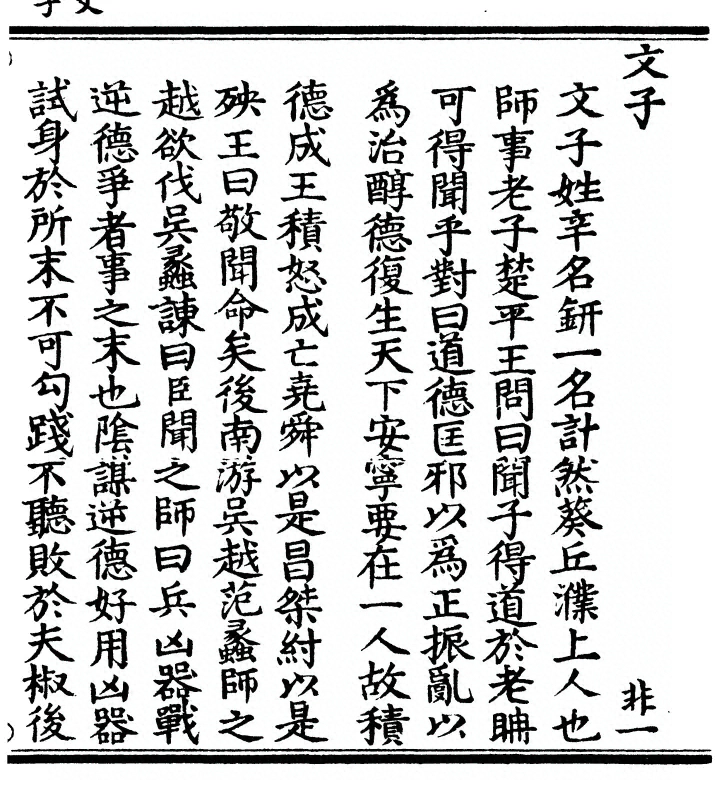 文子
非一
文子姓辛名銒一名計然葵丘濮上人也
師事老子楚平王問曰聞子得道於老聃
可得聞乎對曰道德匡邪以爲正振亂以
爲治醇德復生天下安寧要在一人故積
德成王積怒成亡堯舜以是昌桀紂以是
殃王曰敬聞命矣後南游吳越范蠡師之
越欲伐吳蠡諫曰臣聞之師曰兵凶器戰
逆德爭者事之末也陰謀逆德好用凶器
試身於所末不可勾踐不聽敗於夫椒後